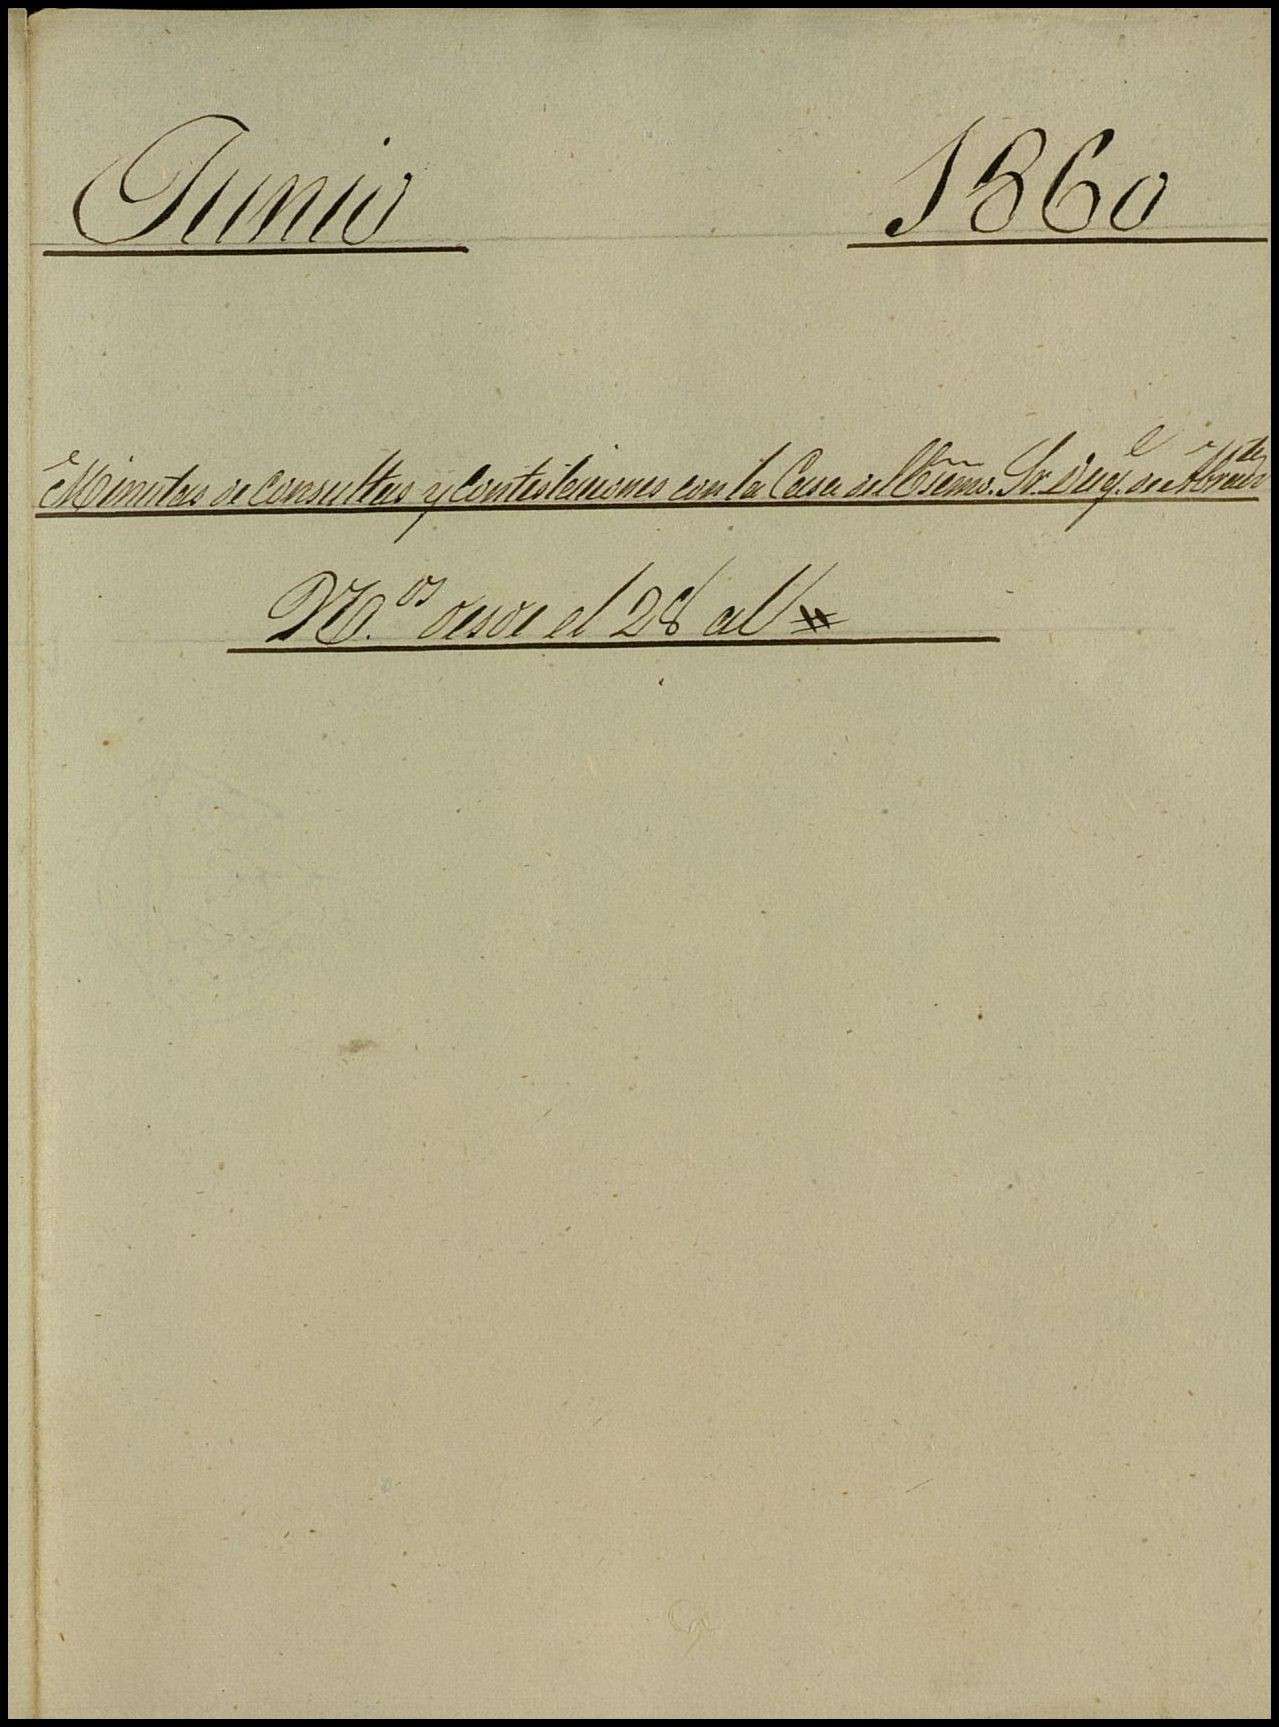 Junio 1860
Minutas de consultas y contestaciones con la Casa del Escmo. Sr. Duq.e de Abrantes
N.os desde el 28 al